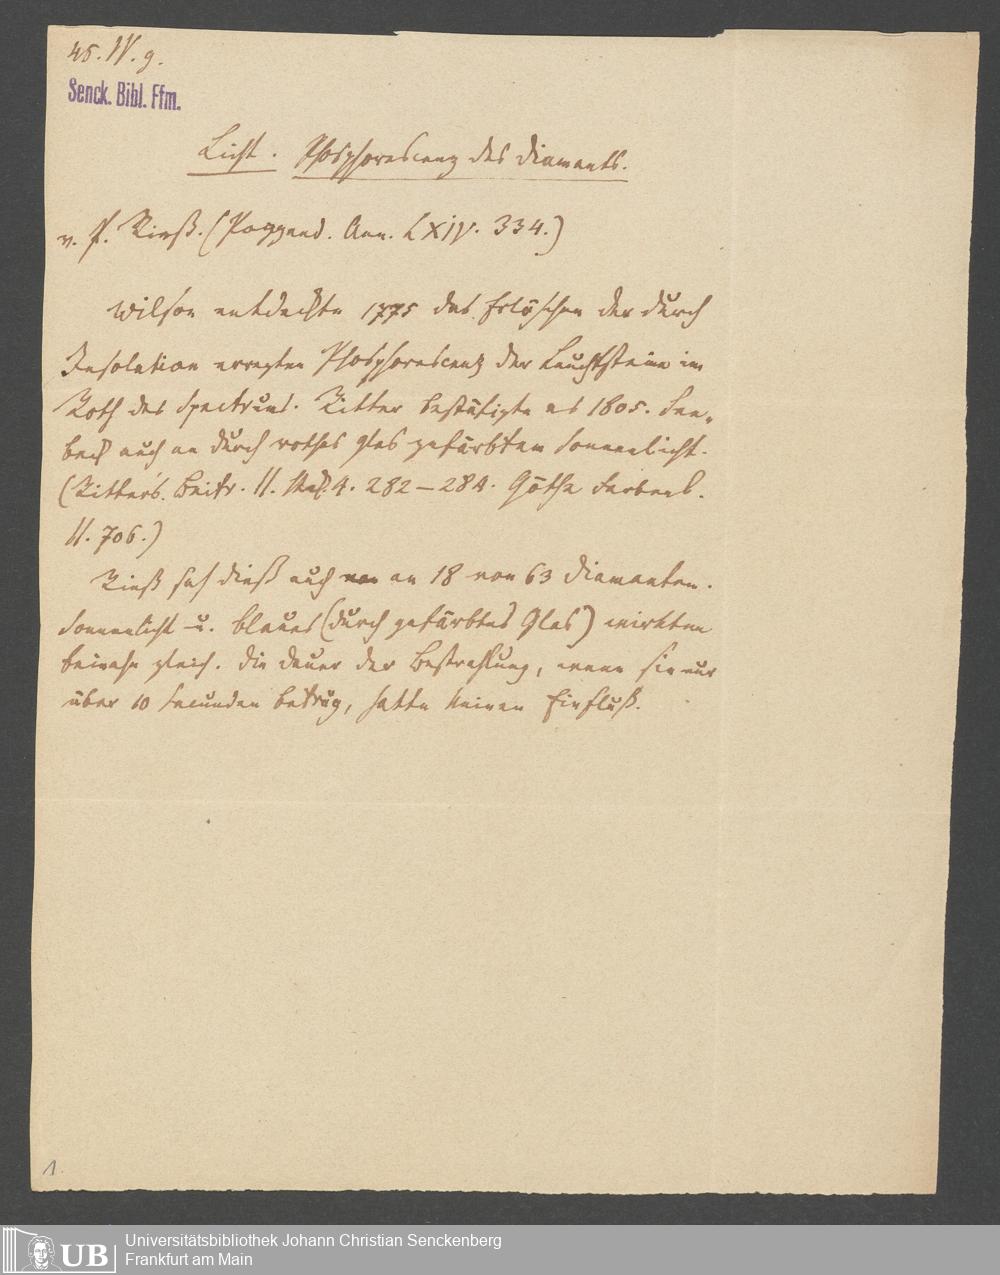 45. IV. 9.
Senck. Bibl. Ffm.
Licht. Phosphorescenz des Diamants.
v. P. Rieß. (Poggend. Ann. LXIV. 334.)
Wilson entdeckte 1775 das Erlöschen der durch
Insolation erregten Phosphorescenz der Leuchtsteine im
Roth des Spectrums. Ritter bestätigte es 1805. See„
beck auch an durch rothes Glas gefärbtem Sonnenlicht.
(Ritter's. Beitr. II. 4. 282–284. Göthe Farbenl.
II. 706.)
Rieß sah dieß auch an 18 von 63 Diamanten.
Sonnenlicht u. blaues (durch gefärbtes Glas) wirkten
beinahe gleich. Die Dauer der Bestrahlung, wenn sie nur
über 10 Secunden betrug, hatte keinen Einfluß.
1.
UB
Universitätsbibliothek Johann Christian Senckenberg
Frankfurt am Main